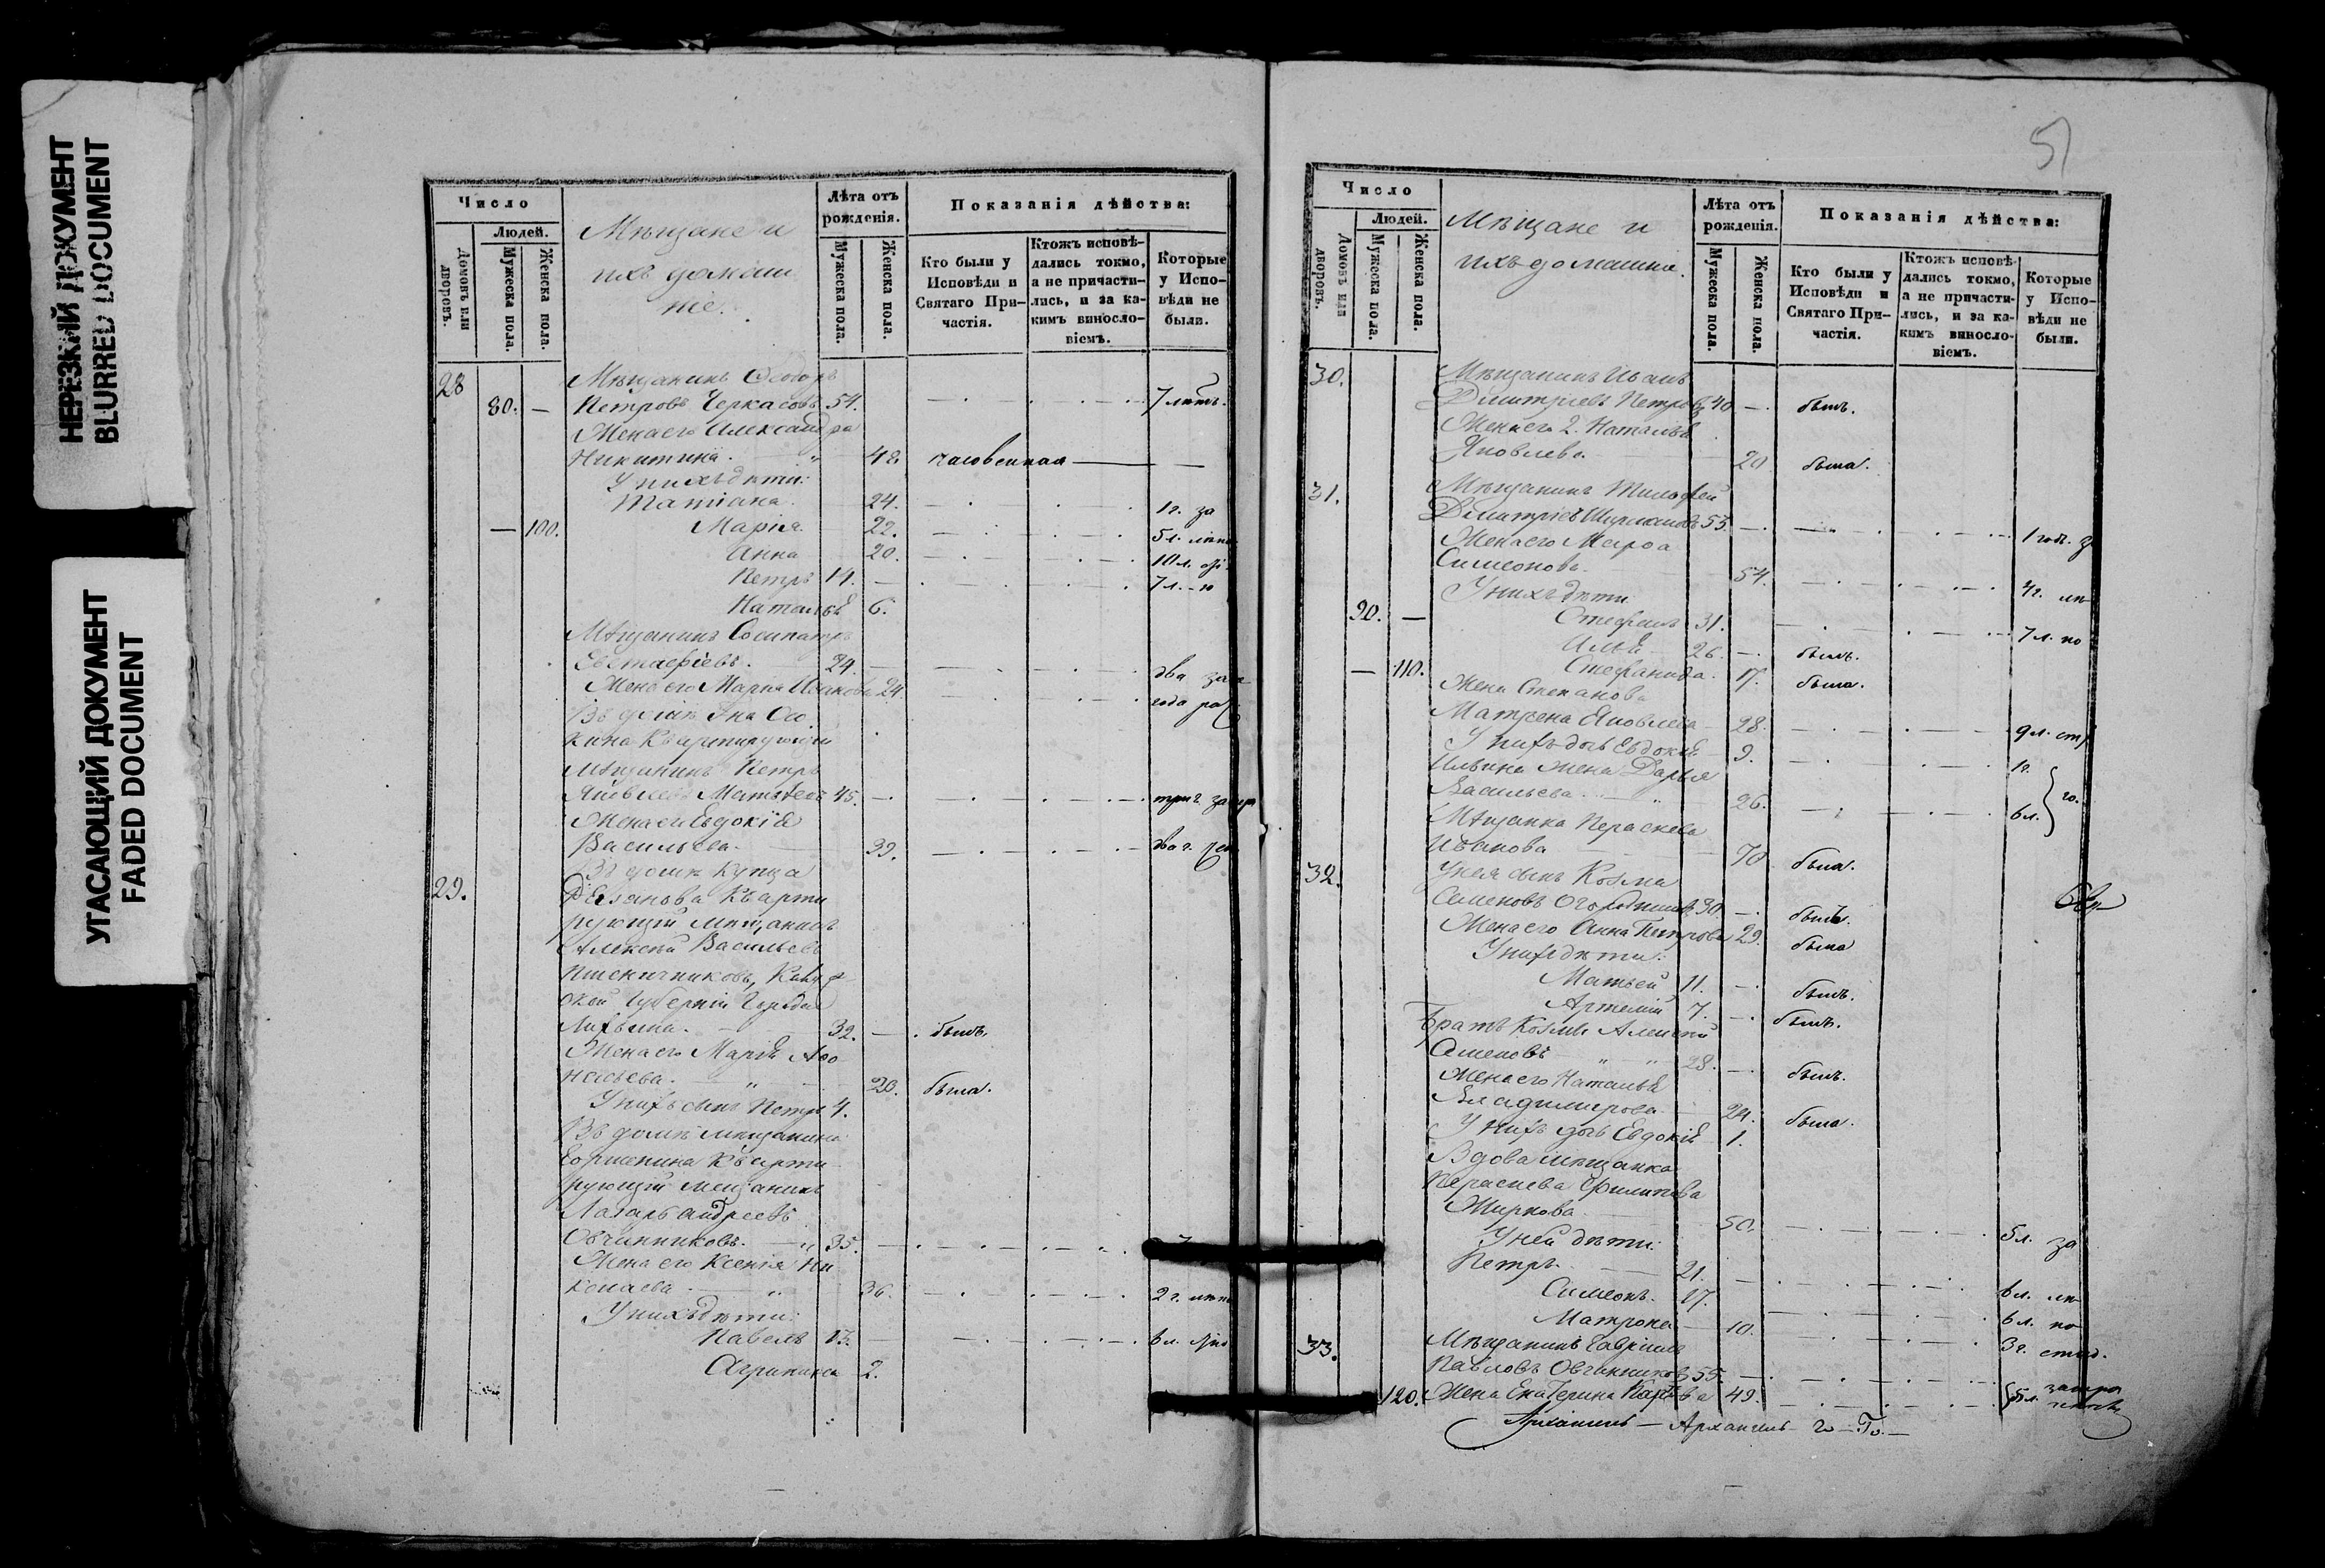 НЕРЕЗКИЙ ДОКУМЕНТ
BLURRED DOCUMENT
УГАСАЮЩИЙ ДОКУМЕНТ
FADED DOCUMENT
Число
Людей.
Домовъ или дворовъ.
Мужеска пола.
Женска пола.
Мѣщане и
ихъ домаш
ніе.
Лѣта отъ
рожденія.
Мужеска пола.
Женска пола.
Показанія дѣйства:
Кто были у
Исповѣди и
Святаго При-
частія.
Ктожъ исповѣ-
дались токмо,
а не причасти-
лись, и за ка-
кимъ виносло-
віемъ.
Которые
у Испо-
вѣди не
были.
28 Мѣщанинъ Ѳеодоръ
80. — Петровъ Черкасовъ 54. 7 лѣтъ.
Жена его Александра
Никитина. 48 часовенная
У нихъ дѣти:
Татіана. 24. 1 г. за
— 100. Марія. 22. 5 л.
Анна 20. 10 л.
Петръ 14. 7 л.
Наталья 6.
Мѣщанинъ Сосипатръ
Евстафіевъ. 24. два
Жена его Марѳа Иванова 24 года
Въ домѣ
Квартирующій
Мѣщанинъ Петръ
Яковлевъ Матвеевъ 45. три г.
Жена его Евдокія
Васильева. 39. два г.
Въ домѣ купца
29. Кварти
рующій мѣщанинъ
Алексѣй Васильевъ
Пшеничниковъ, Калуж
ской Губерніи Города
Лихвина. 32. былъ.
Жена его Марія Аѳо
насьева. 20. была.
У нихъ сынъ Петръ 4.
Въ домѣ мѣщанина
Кварти
рующій мещанинъ
Лазарь Андреевъ
Овчинниковъ. 35.
Жена его Ксенія Ни
колаева 36. 2 г.
У нихъ дѣти:
Павелъ 13. 6 л.
Агрипина 2.
51
Число
Людей.
Домовъ или дворовъ.
Мужеска пола.
Женска пола.
Мѣщане и
ихъ домашніе.
Лѣта отъ
рожденія.
Мужеска пола.
Женска пола.
Показанія дѣйства:
Кто были у
Исповѣди и
Святаго При-
частія.
Ктожъ исповѣ-
дались токмо,
а не причасти-
лись, и за ка-
кимъ виносло-
віемъ.
Которые
у Испо-
вѣди не
были.
30. Мѣщанинъ Иванъ
Димитріевъ Петровъ 40 былъ.
Жена его 2. Наталья
Яковлева. 20 была.
31. Мѣщанинъ Тимофей
Димитріевъ 55. 1 годъ
Жена его Марѳа
Симеонова. 54. 4 г.
У нихъ дѣти
90. — Стефанъ 31. 7 л. по
Илья 26. былъ.
— 110. Стефанида. 17. была.
Жена Степанова
Матрена Яковлева 28. 9 л.
У нихъ дочь Евдокія 9. 1 г.
Ильина жена Дарья
Васильева 26. 6 л.
Мѣщанка Параскева
Иванова 70 была.
32. У нея сынъ Козма
Семеновъ 30 былъ.
Жена его Анна Петрова 29. была
У нихъ дѣти:
Матвей 11. былъ.
Артемій 7. былъ.
Братъ Козмы Алексѣй
Семеновъ 28. былъ.
Жена его Наталья
Владимирова 24. была.
У нихъ дочь Евдокія 1.
Вдова мѣщанка
Параскева Филипова
Жиркова 50. 5 л. за
У ней дѣти:
Петръ 21. 6 л.
Симеонъ. 17. 6 л. по
Матрона 10. 3 г.
33. Мѣщанинъ Гавріилъ
Павловъ Овчинниковъ 55.
120. Жена Екатерина Карпова 49. 5 л.